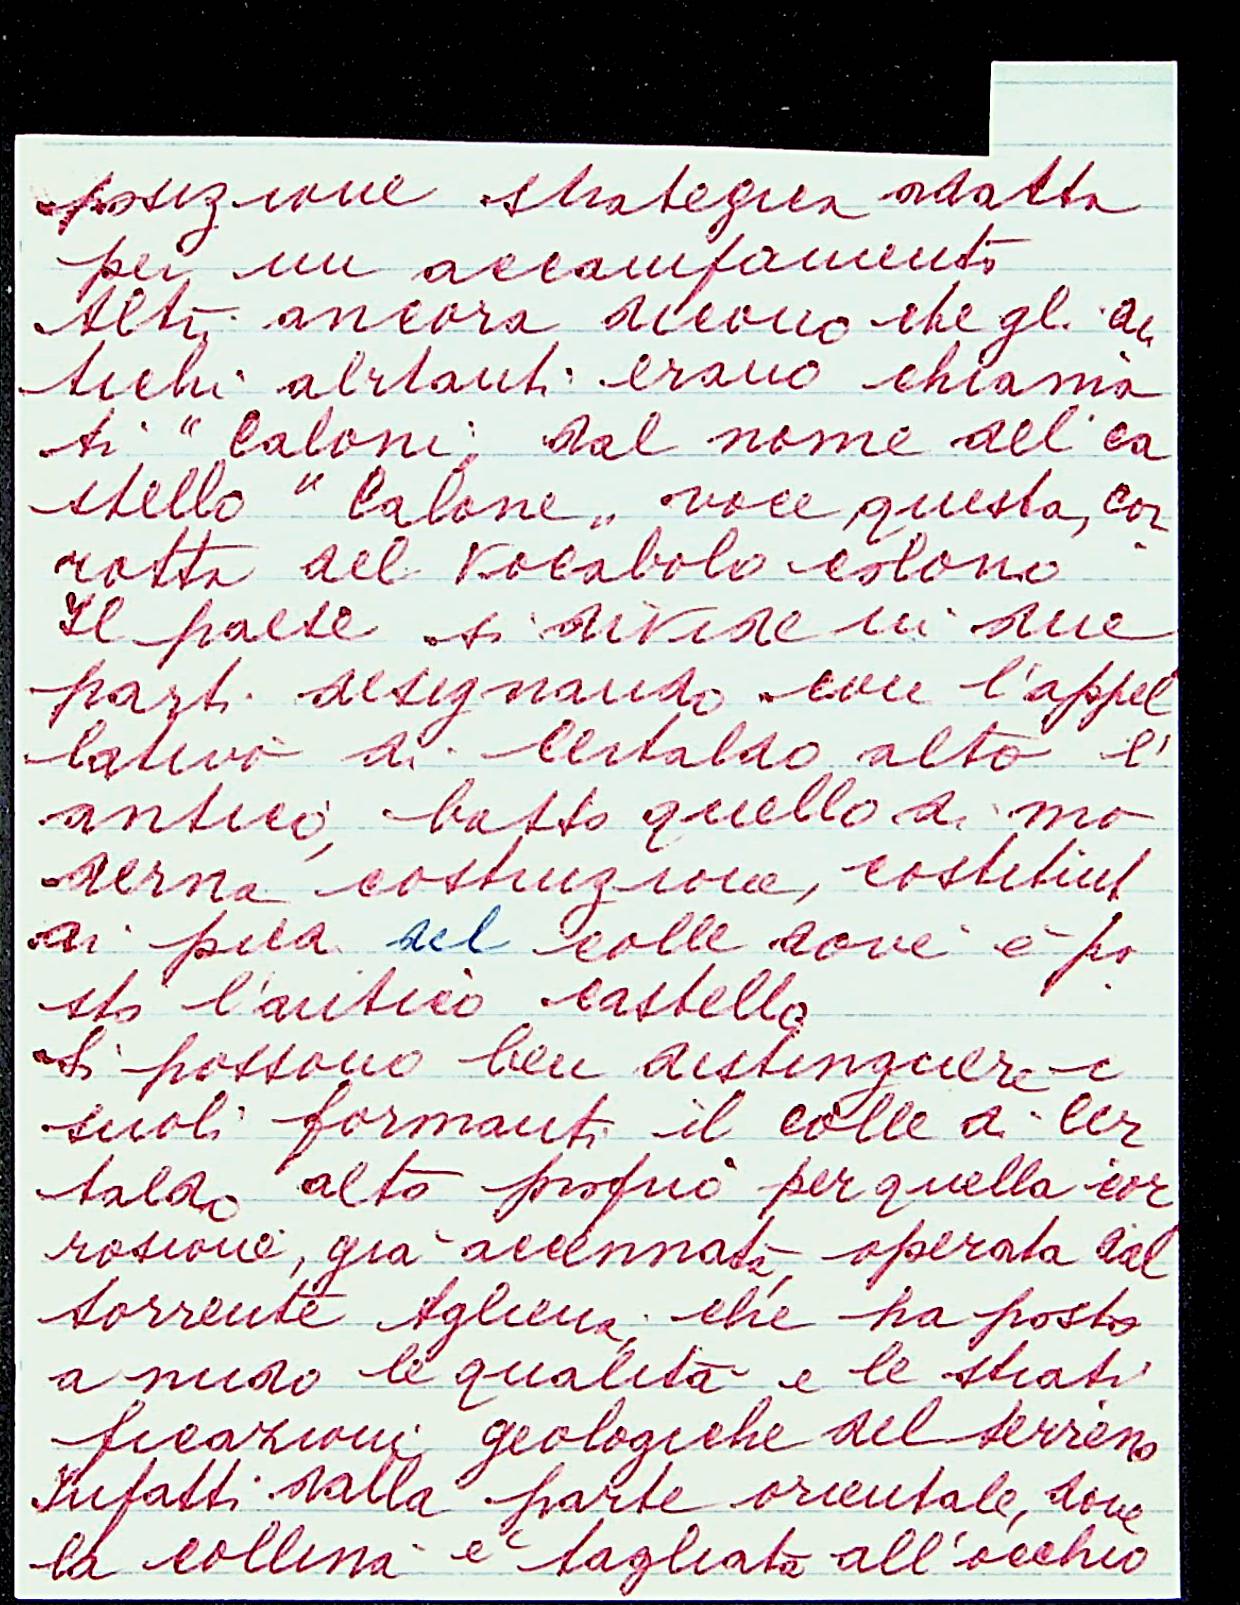 posizione strategica adatta
per un accampamento
Altri ancora dicono che gli an
tichi abitanti erano chiama
ti " Caloni, dal nome del ca
stello " Calone „ voce questa, cor
rotta del vocabolo colono
Il paese si divide in due
parti designando con l'appel
lativo di Certaldo alto l'
antico, basso quello di mo
derna costruzione, costituit
ai piedi del colle dove è po
sto l'antico castello
Si possono ben distinguere i
suoli formanti il colle di Cer
taldo alto proprio per quella cor
rosione, già accennata, operata dal
torrente Agliena, che ha posto
a nudo le qualità e le strati
ficazioni geologiche del terreno
Infatti dalla parte orientale, dove
la collina è tagliata all'occhio